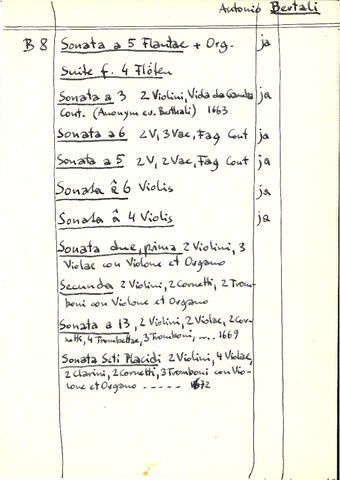 Antonio Bertali
B 8 Sonata a 5 Flautae + Org. ja
Suite f. 4 Flöten
Sonata a 3 2 Violini, Viola da Gamba ja
Cont. (Anonym ev. Berthali) 1663
Sonata a 6 2 V, 3 Vae, Fag Cont ja
Sonata a 5 2 V, 2 Vae, Fag Cont ja
Sonata â 6 Violis ja
Sonata â 4 Violis ja
Sonata due, prima 2 Violini, 3
Violae con Violone et Organo
Secunda 2 Violini, 2 Cornetti, 2 Trom-
boni con Violone et Organo
Sonata a 13, 2 Violini, 2 Violae, 2 Cor-
netti, 4 Trombettae, 3 Tromboni, .... 1669
Sonata Scti Placidi 2 Violini, 4 Violae,
2 Clarini, 2 Cornetti, 3 Tromboni con Vio-
lone et Organo - - - - - 1672